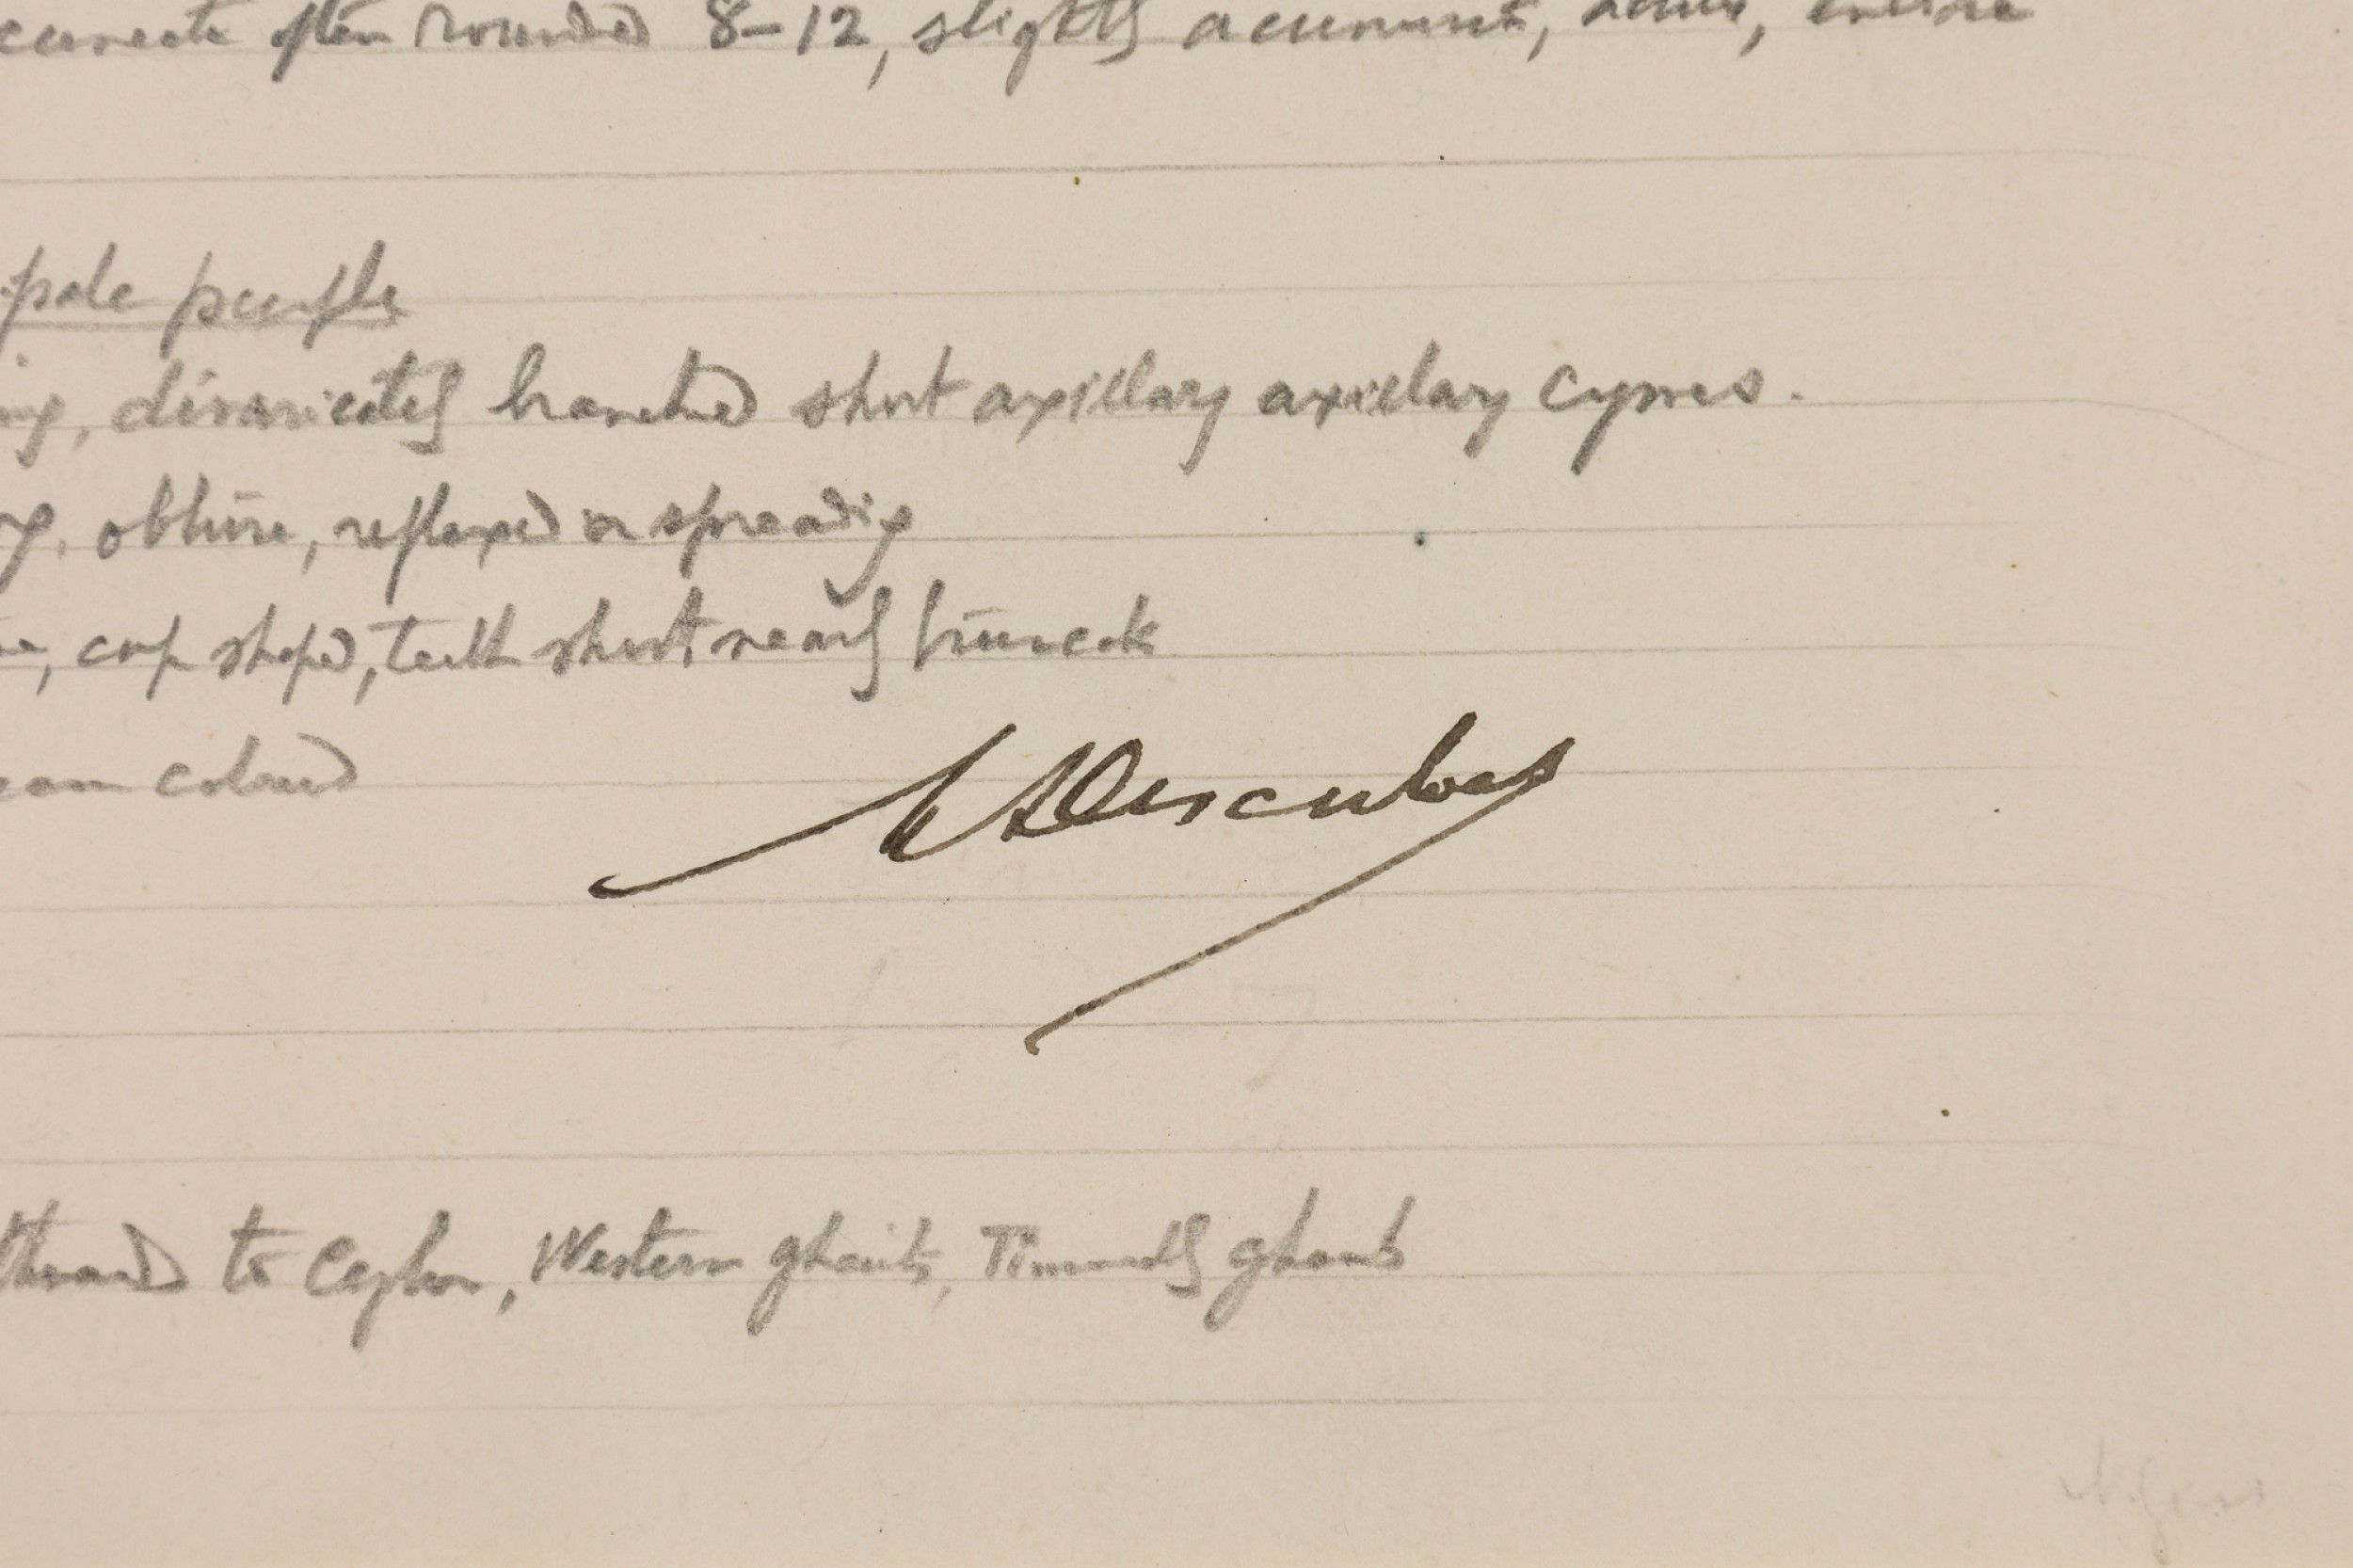 cuneate often rounded 8-12, slightly acuminate, acute, entire
pale purple
divaricately branched short axillary axillary cymes.
obtuse, reflexed or spreading
cup shaped, teeth short nearly truncate
coloured
to Ceylon, Western ghauts, Tinnevelly ghauts